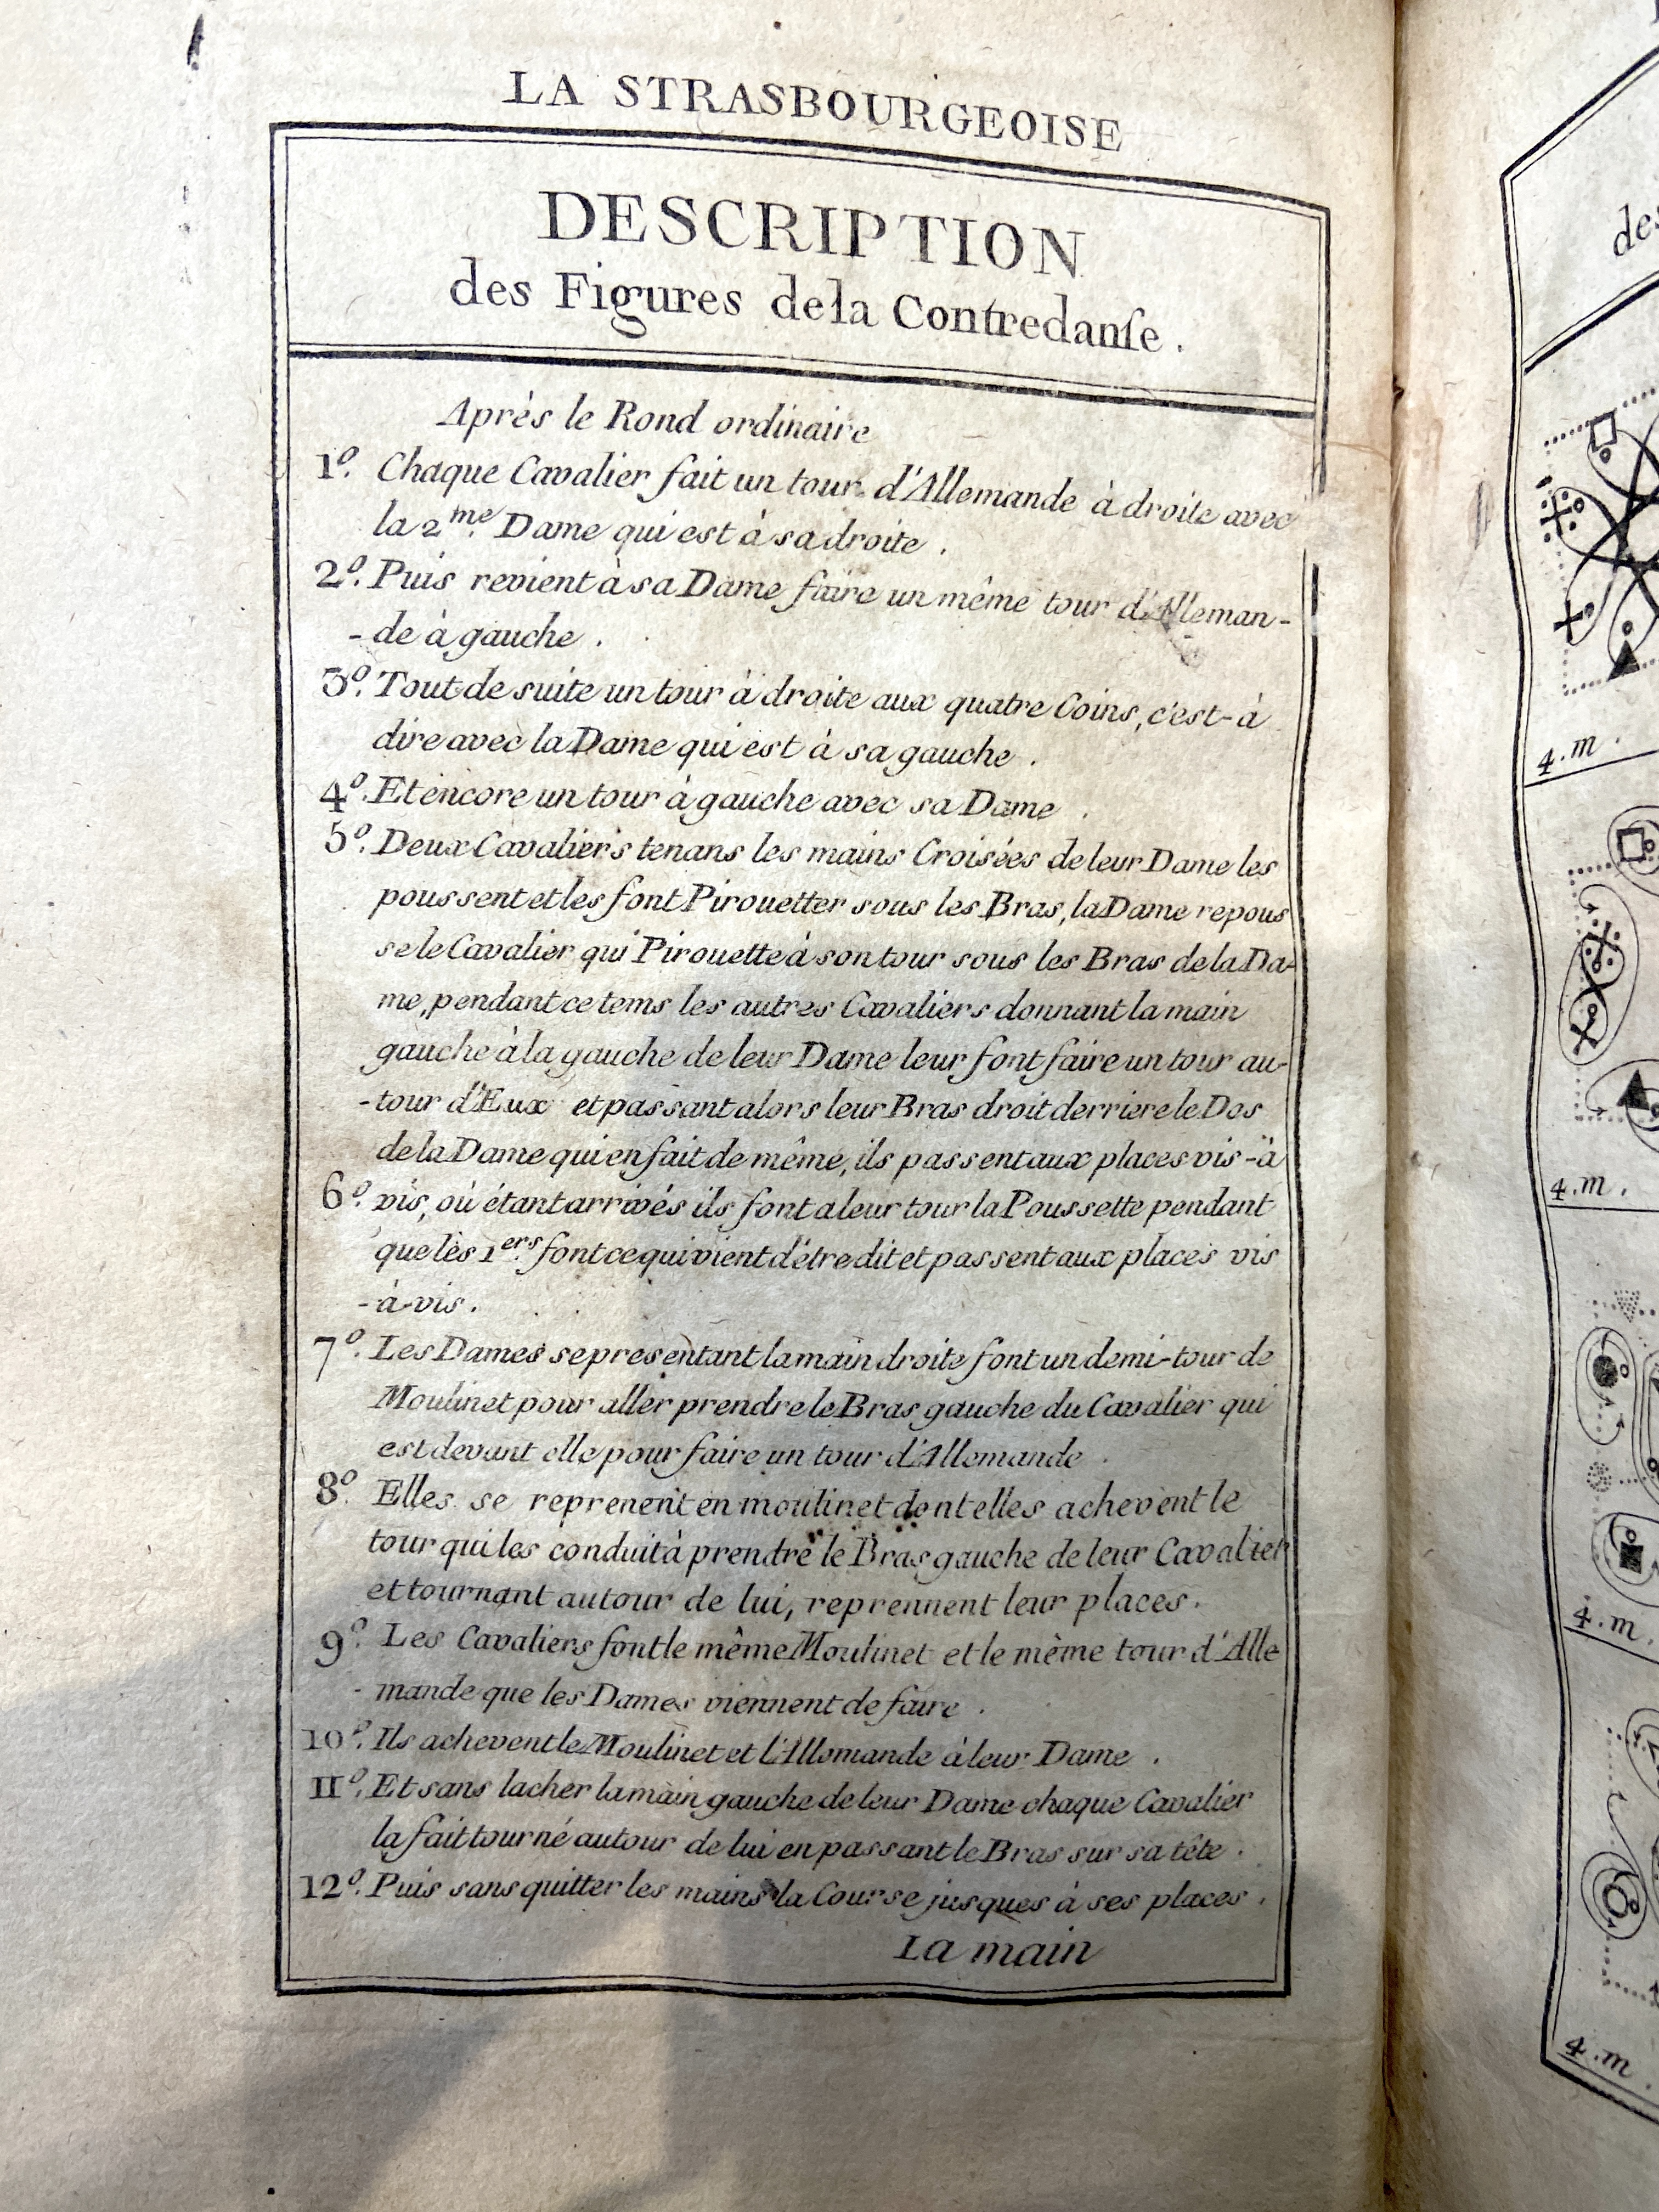 LA STRASBOURGEOISE
DESCRIPTION
des Figures de la Contredanſe.
Après le Rond ordinaire
1º. Chaque Cavalier fait un tour d'Allemande à droite avec
la 2.me Dame qui est à sa droite.
2º. Puis revient à sa Dame faire un même tour d'Alleman-
-de à gauche.
3º. Tout de suite un tour à droite aux quatre Coins, c'est-à
dire avec la Dame qui est à sa gauche.
4º. Et encore un tour à gauche avec sa Dame.
5º. Deux Cavaliers tenans les mains Croisées de leur Dame les
poussent et les font Pirouetter sous les Bras, la Dame repous
se le Cavalier qui Pirouette à son tour sous les Bras de la Da-
me, pendant ce tems les autres Cavaliers donnant la main
gauche à la gauche de leur Dame leur font faire un tour au-
-tour d'Eux et passant alors leur Bras droit derriere le Dos
de la Dame qui en fait de même, ils passent aux places vis-à
6º. vis, où étant arrivés ils font a leur tour la Poussette pendant
que les 1.ers font ce qui vient d'être dit et passent aux places vis
-à-vis.
7º. Les Dames se presentant la main droite font un demi-tour de
Moulinet pour aller prendre le Bras gauche du Cavalier qui
est devant elle pour faire un tour d'Allemande.
8º. Elles se reprenent en moulinet dont elles achevent le
tour qui les conduit à prendre le Bras gauche de leur Cavalier
et tournant autour de lui, reprennent leur places.
9º. Les Cavaliers font le même Moulinet et le même tour d'Alle
-mande que les Dames viennent de faire.
10º. Ils achevent le Moulinet et l'Allemande à leur Dame.
11º. Et sans lacher la main gauche de leur Dame chaque Cavalier
la fait tourné autour de lui en passant le Bras sur sa tête.
12º. Puis sans quitter les mains la Course jusques à ses places.
La main
des
4.m.
4.m.
4.m.
4.m.